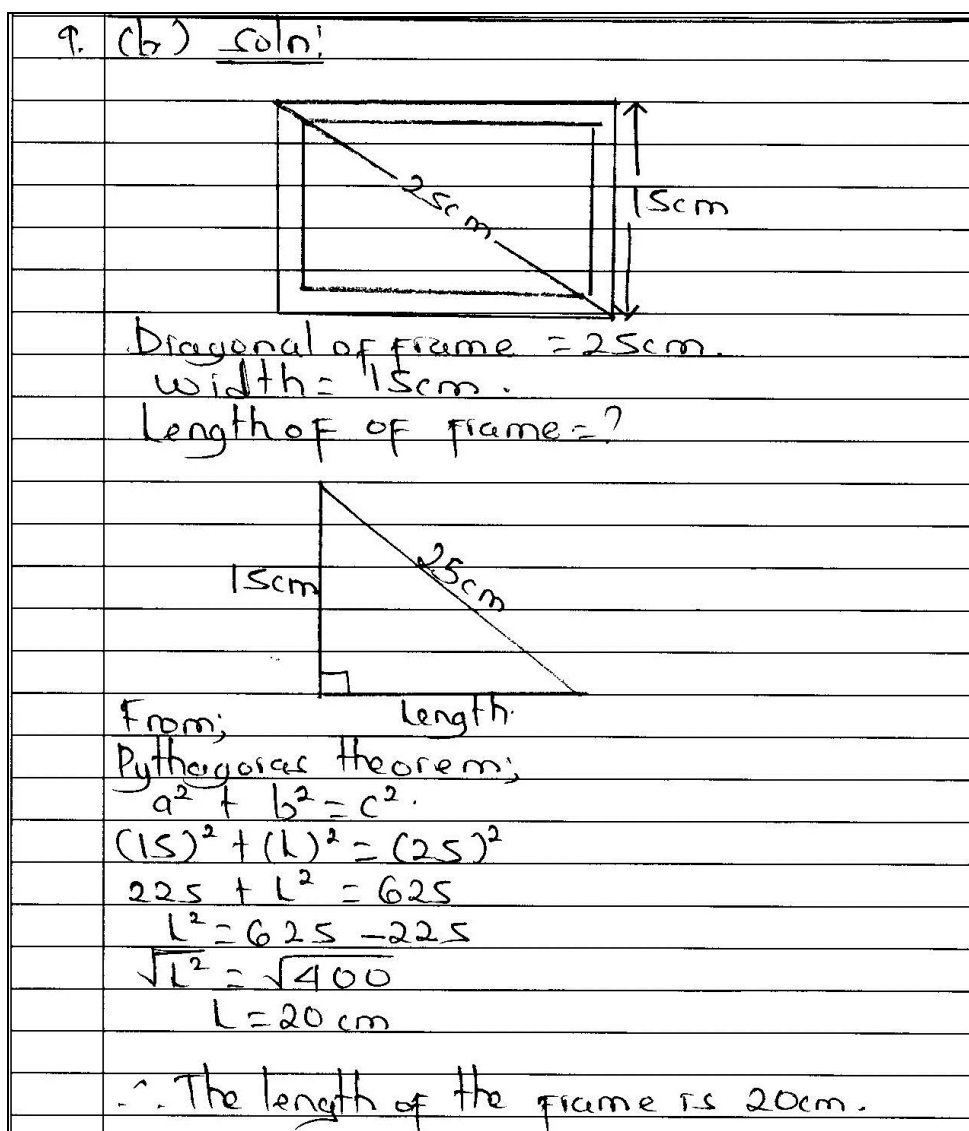 9. (b) soln:
25cm
15cm
Diagonal of frame = 25cm.
width = 15cm.
Length of of frame = ?
15cm
25cm
Length.
From;
Pythagoras theorem;
a² + b² = c².
(15)² + (L)² = (25)²
225 + L² = 625
L² = 625 - 225
√L² = √400
L = 20 cm
∴ The length of the frame is 20cm.